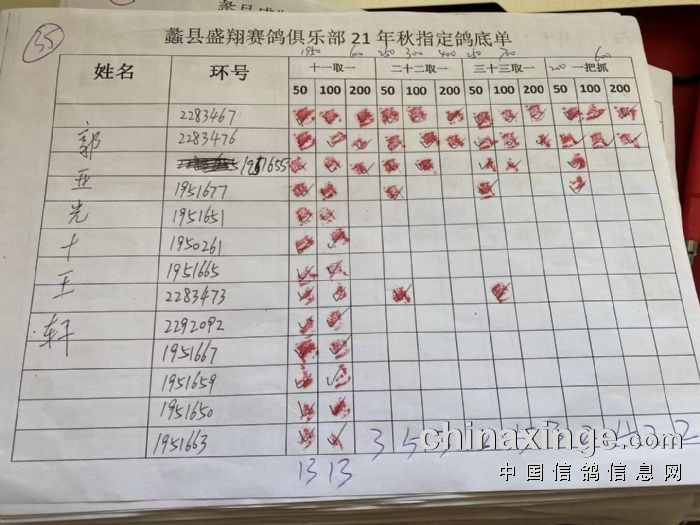 35
蠡县盛翔赛鸽俱乐部 21 年秋指定鸽底单
姓名 环号 十一取一 二十二取一 三十三取一 一把抓
50 100 200 50 100 200 50 100 200 50 100 200
2283467
郭 2283476
1951655
亚 1951677
光 1951651
十 1950261
1951665
王 2283473
轩 2292092
1951667
1951659
1951650
1951663
13 13
chinaxinge.com
中国信鸽信息网